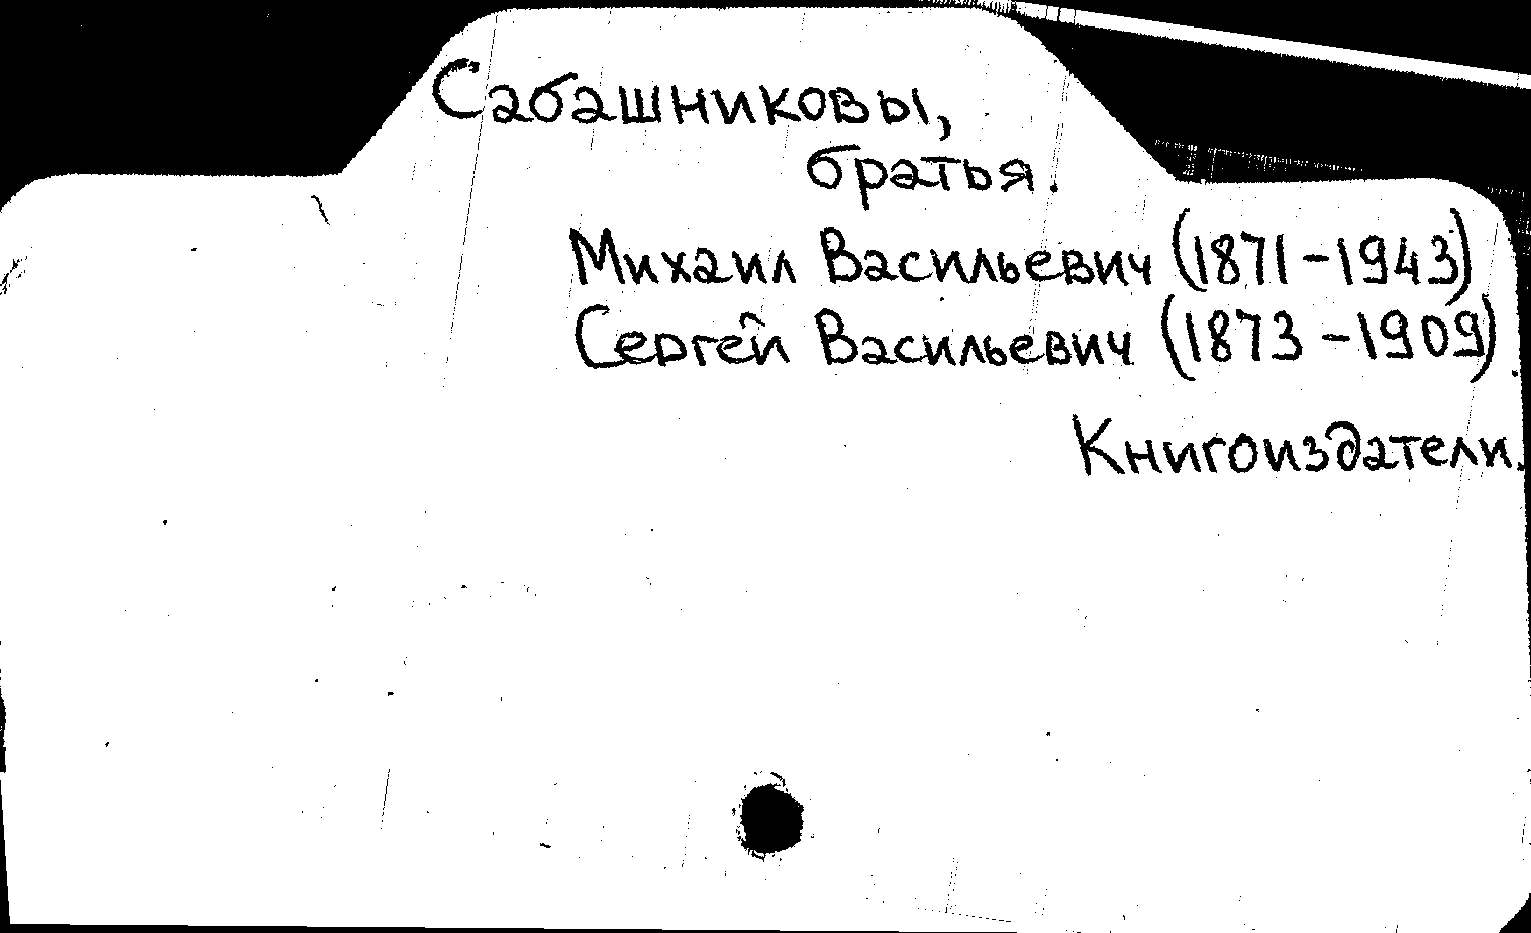 Сабашниковы,
братья.
Михаил Васильевич (1871-1943)
Сергей Васильевич (1873-1909).
Книгоиздатели.